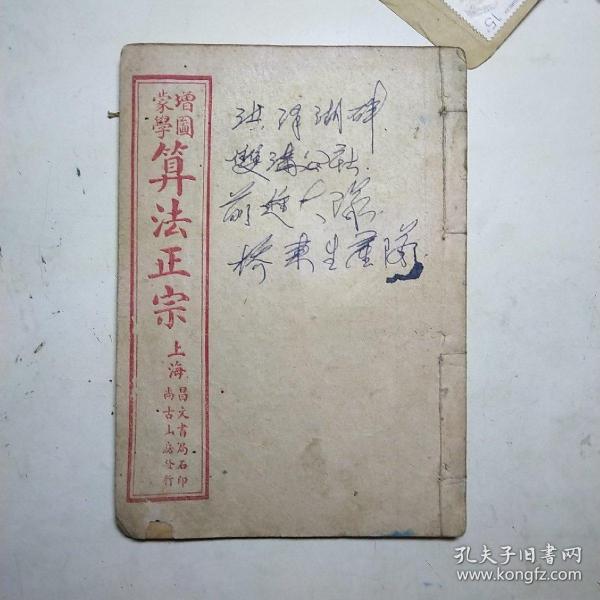 增圖
蒙學
算法正宗
上海
昌文書局石印
尚古山房發行
洪泽湖畔
雙溝公社
前進大隊
橋東生產隊
15
孔夫子旧书网
www.kongfz.com